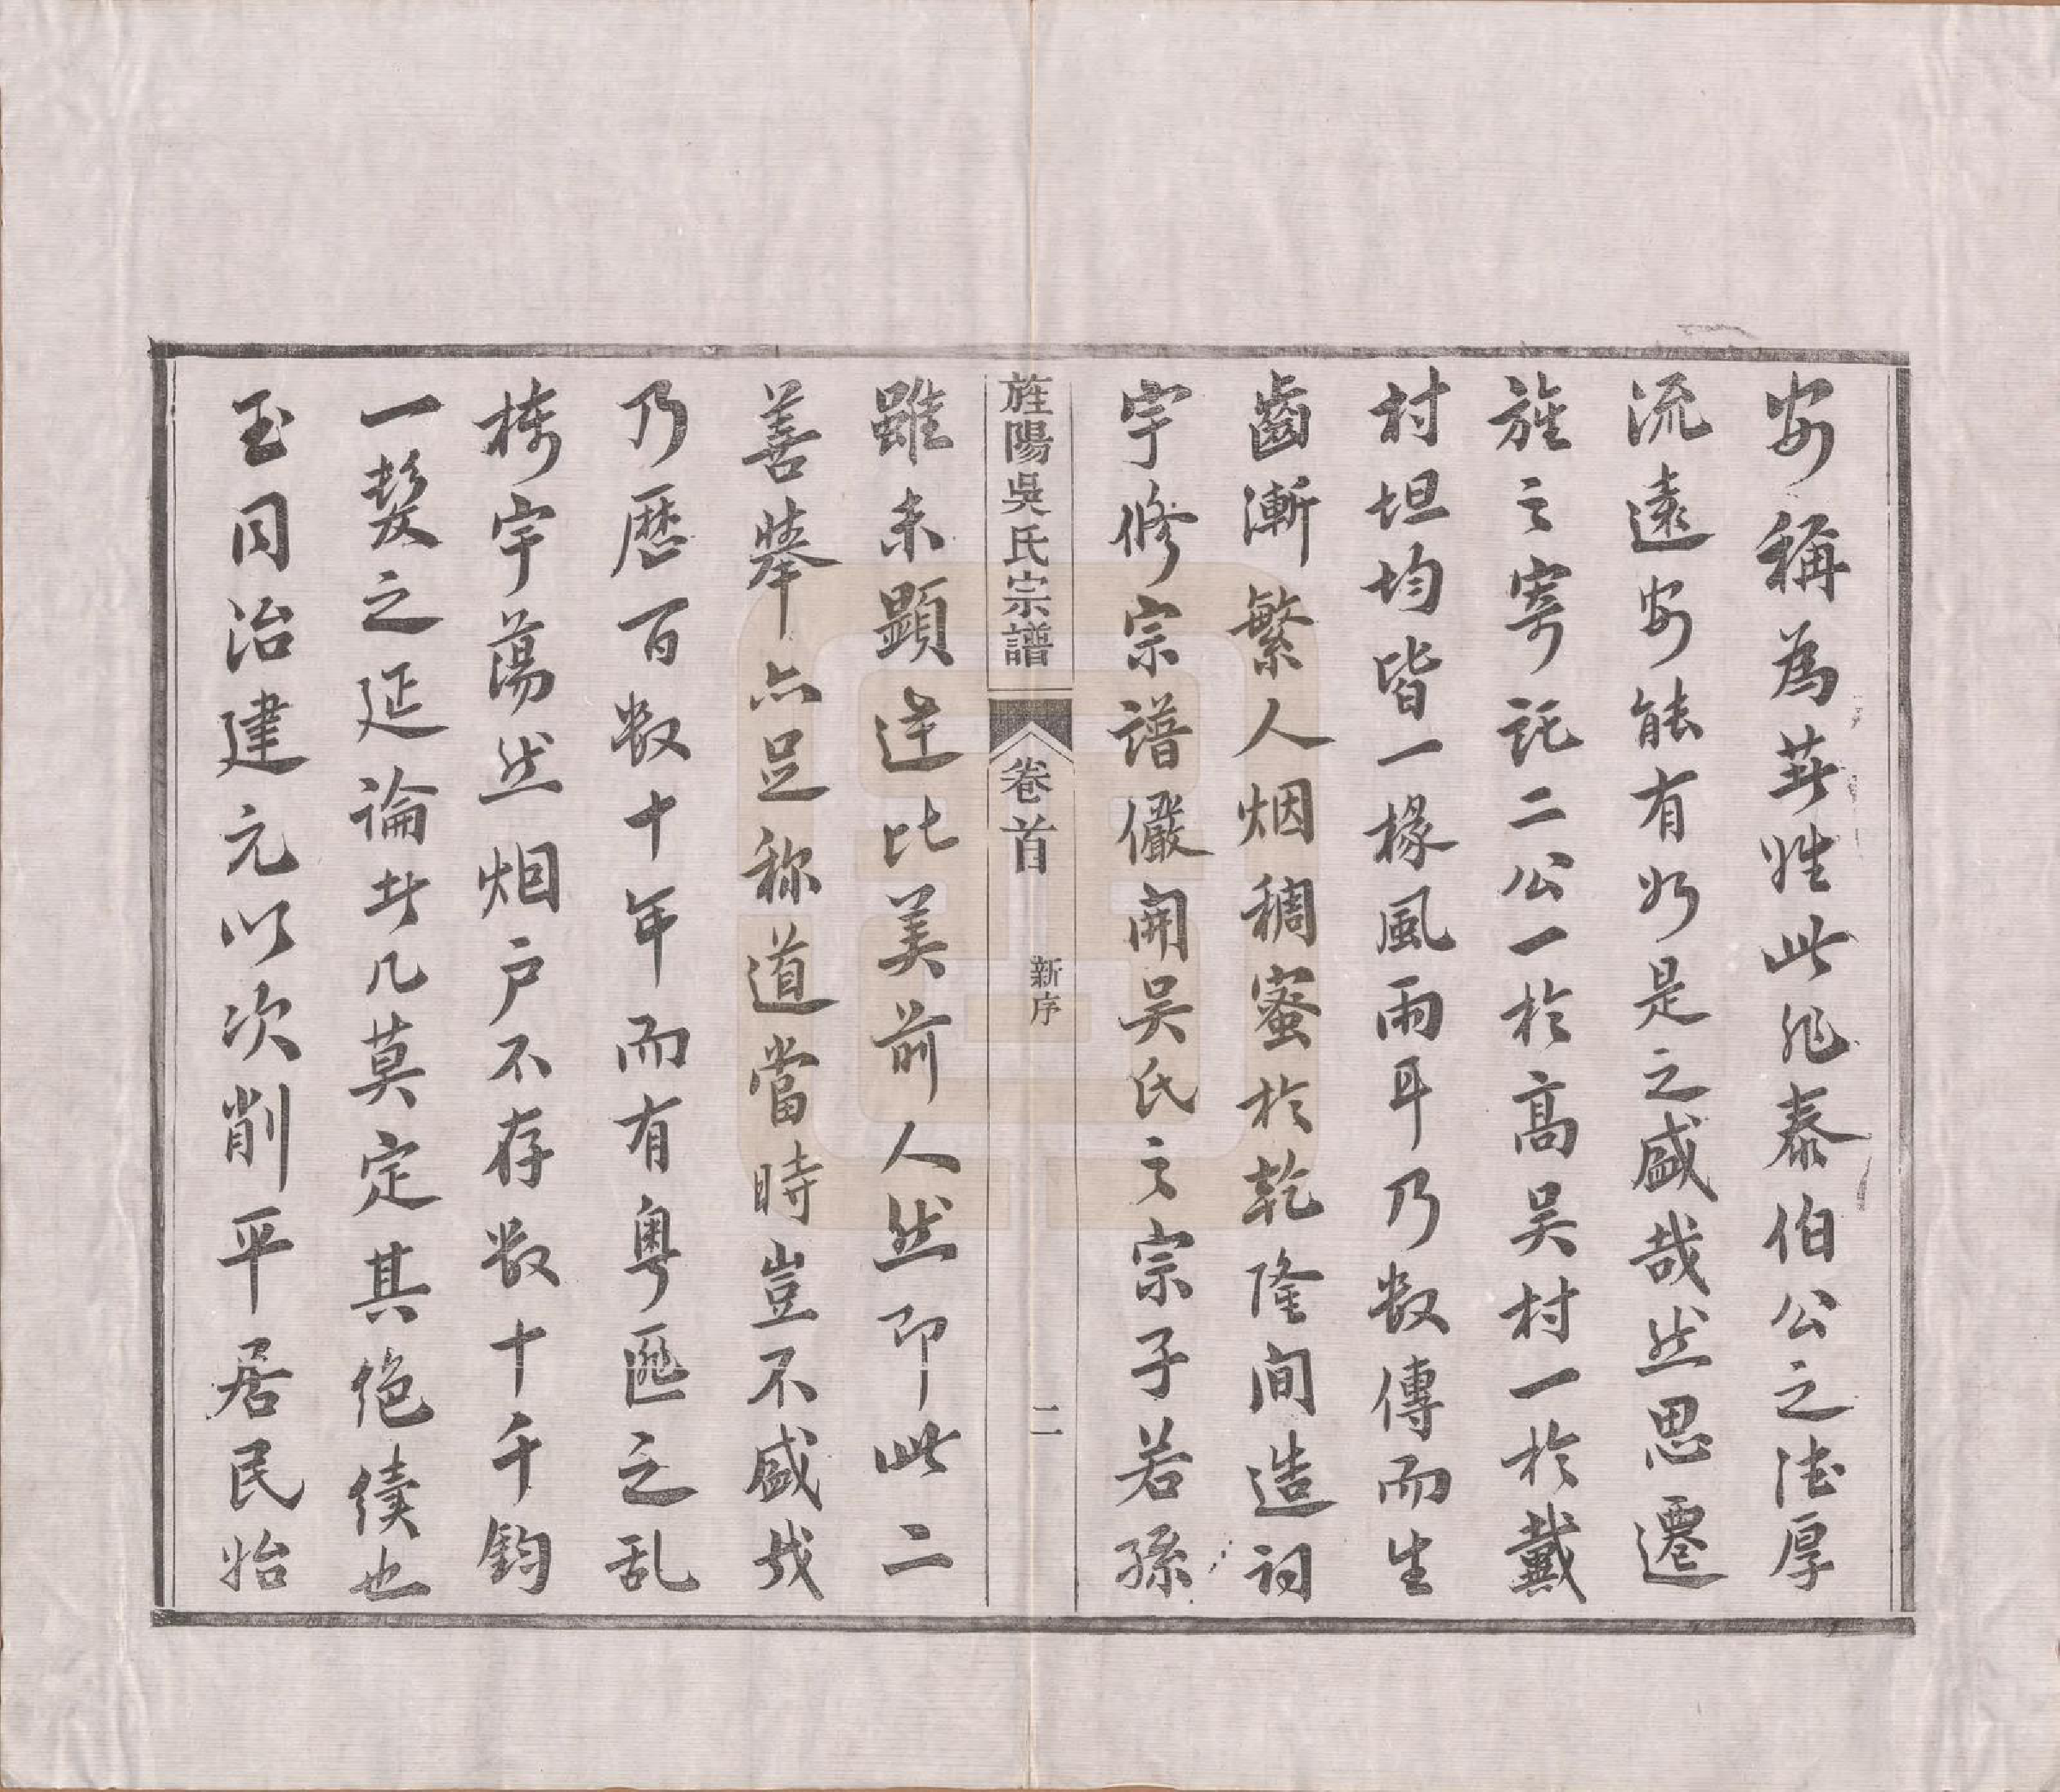 安稱為華姓此非泰伯公之德厚
流遠安能有如是之盛哉然思遷
旌之寄託二公一於高吴村一於戴
村坦均皆一椽風雨耳乃数傳而生
齒漸繁人烟稠蜜於乾隆间造祠
宇修宗譜儼開吴氏之宗子若孫
旌陽吳氏宗譜 卷首 新序 二
雖未顯达比美前人然即此二
善舉亦足称道當時豈不盛哉
乃歷百数十年而有粤匪之乱
栋宇蕩然烟户不存数十千鈞
一髮之延論者几莫定其绝续也
至同治建元以次削平居民始